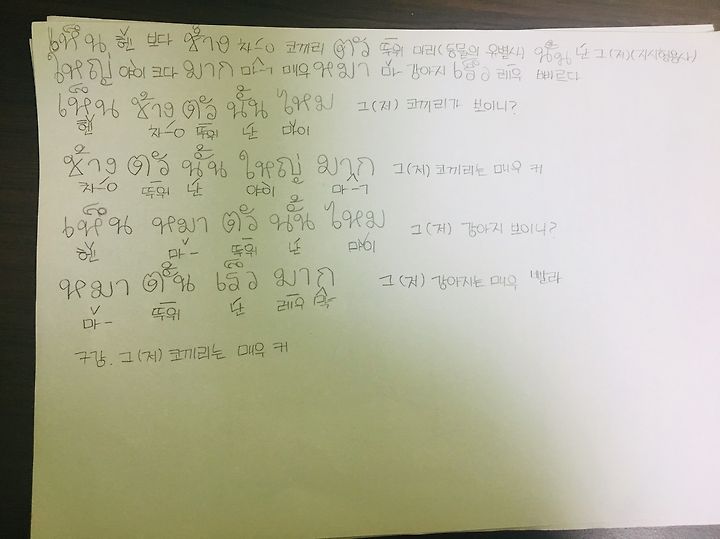 เห็น 헨 보다 ช้าง 차-ㅇ 코끼리 ตัว 뚜워 마리(동물의 유별사) นั้น 난 그(저)(지시형용사)
ใหญ่ 야이 크다 มาก 마-ㄱ 매우 หมา 마- 강아지 เร็ว 레우 빠르다
เห็น ช้าง ตัว นั้น ไหม 그(저) 코끼리가 보이니?
헨 차-ㅇ 뚜워 난 마이
ช้าง ตัว นั้น ใหญ่ มาก 그(저) 코끼리는 매우 커
차-ㅇ 뚜워 난 야이 마-ㄱ
เห็น หมา ตัว นั้น ไหม 그(저) 강아지 보이니?
헨 마- 뚜워 난 마이
หมา ตั้น เร็ว มาก 그(저) 강아지는 매우 빨라
마- 뚜워 난 레우
7강. 그(저) 코끼리는 매우 커